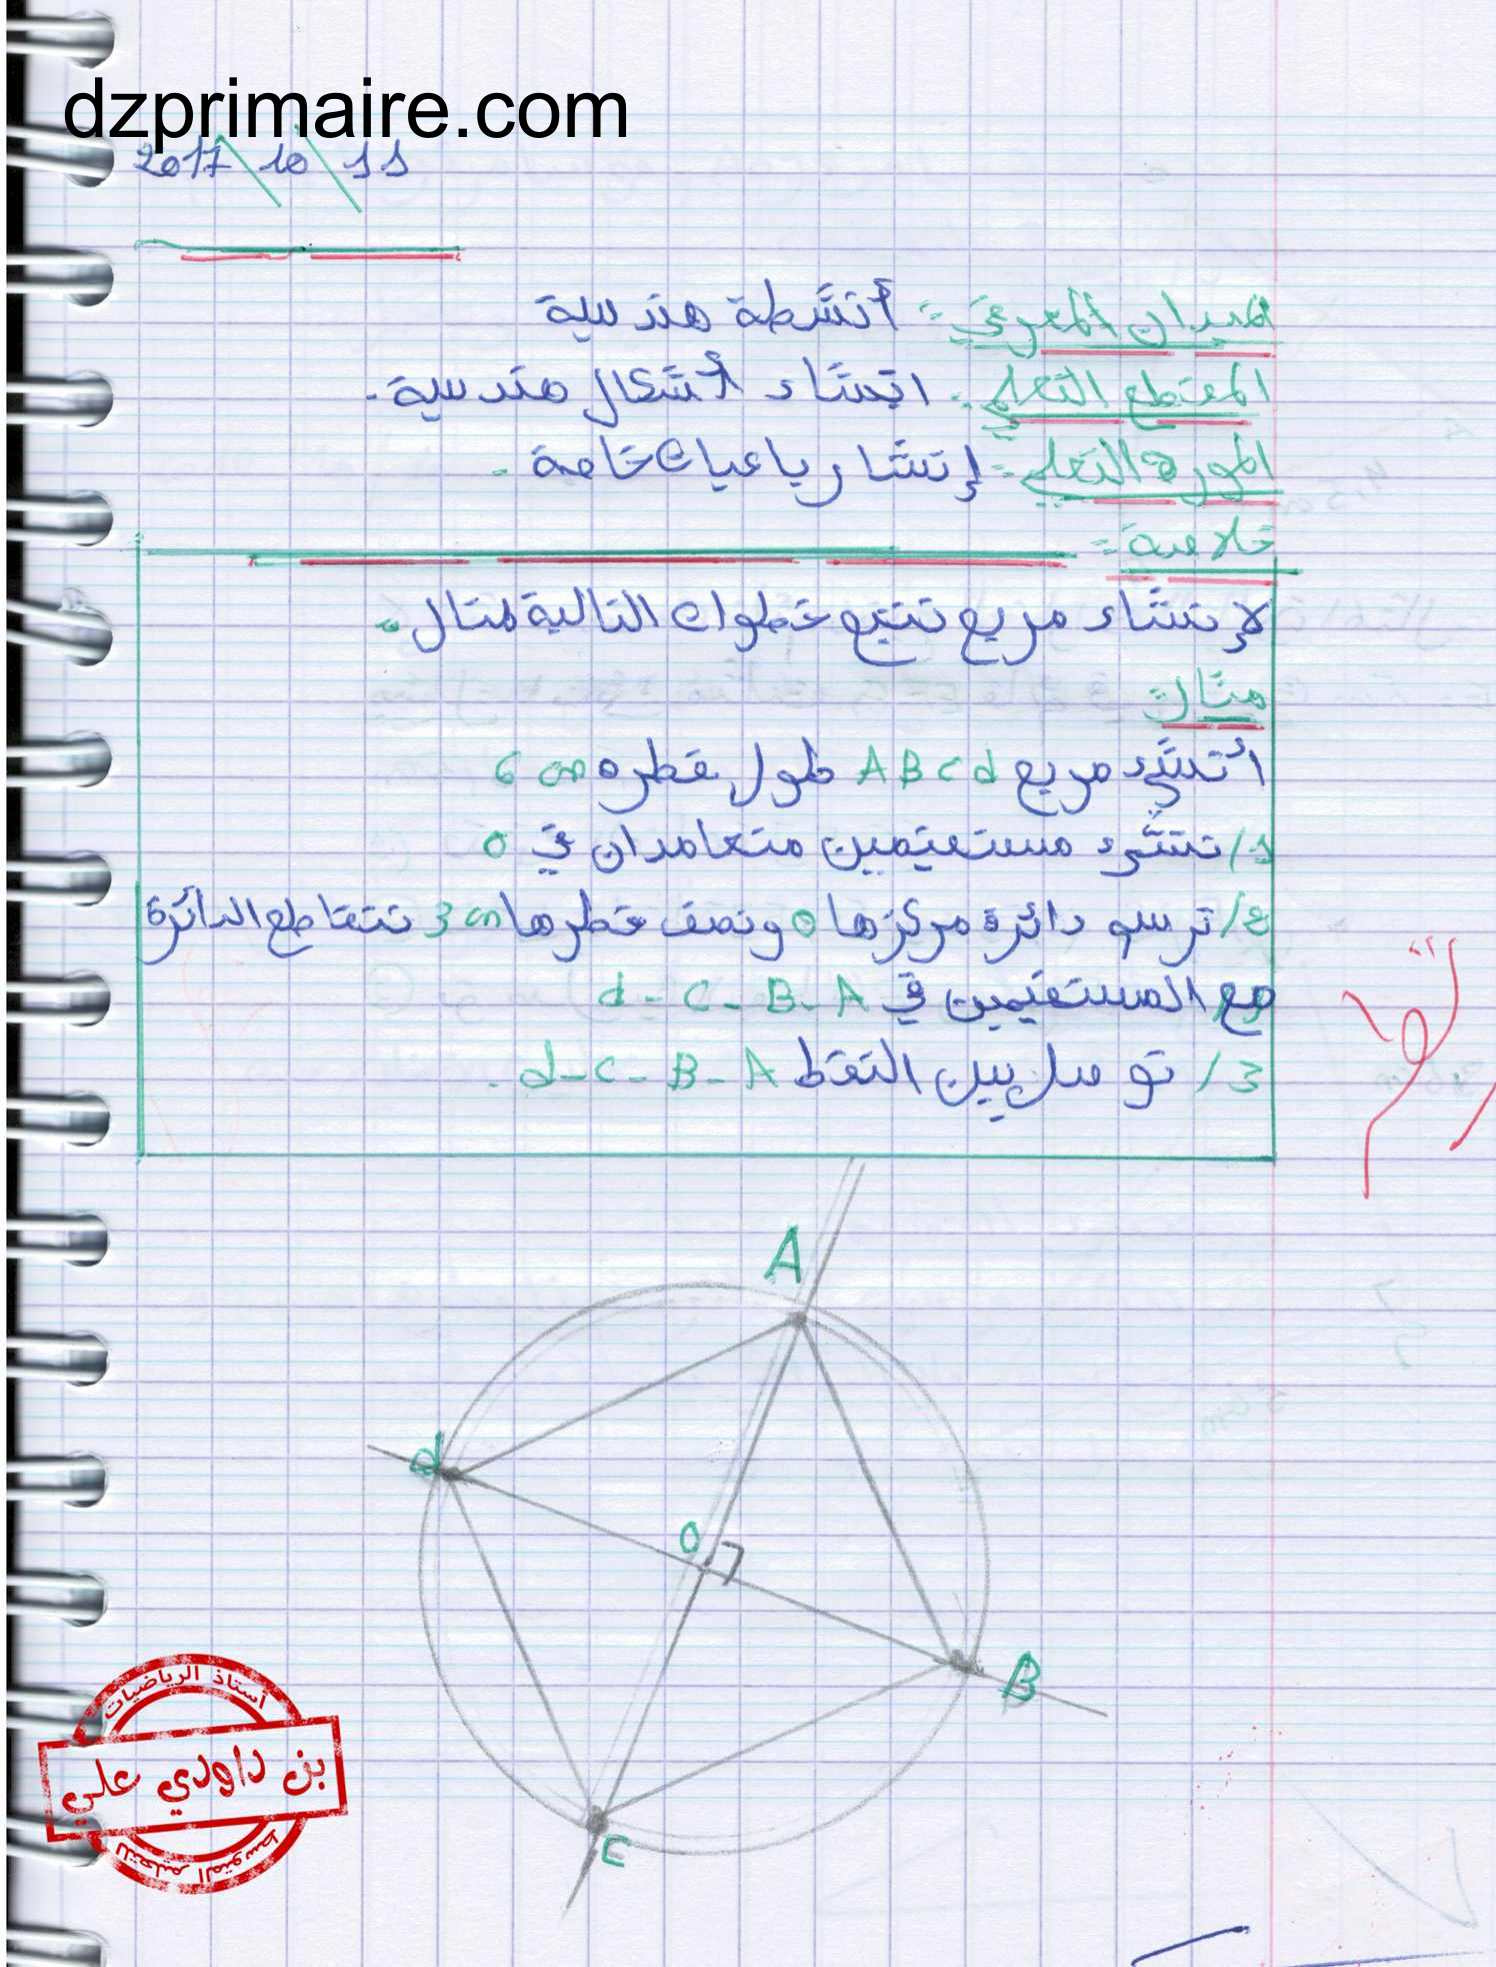 dzprimaire.com
2017\10\11
الميدان المعرفي: أنشطة هندسية
المقطع التعلمي: انشاء أشكال هندسية.
المورد التعلمي: إنشا رباعيات خاصة.
خلاصة:
لإنشاء مربع نتبع خطوات التالية لمثال:
مثال:
أنشئ مربع ABCd طول قطره 6 cm
1/ ننشئ مستقيمين متعامدان في o
2/ نرسم دائرة مركزها o ونصف قطرها 3 cm تتقاطع الدائرة
مع المستقيمين في d - C - B - A
3/ نوصل بين النقط d-C-B-A.
A
d
O
B
C
أستاذ الرياضيات
بن داودي علي
للتعليم المتوسط